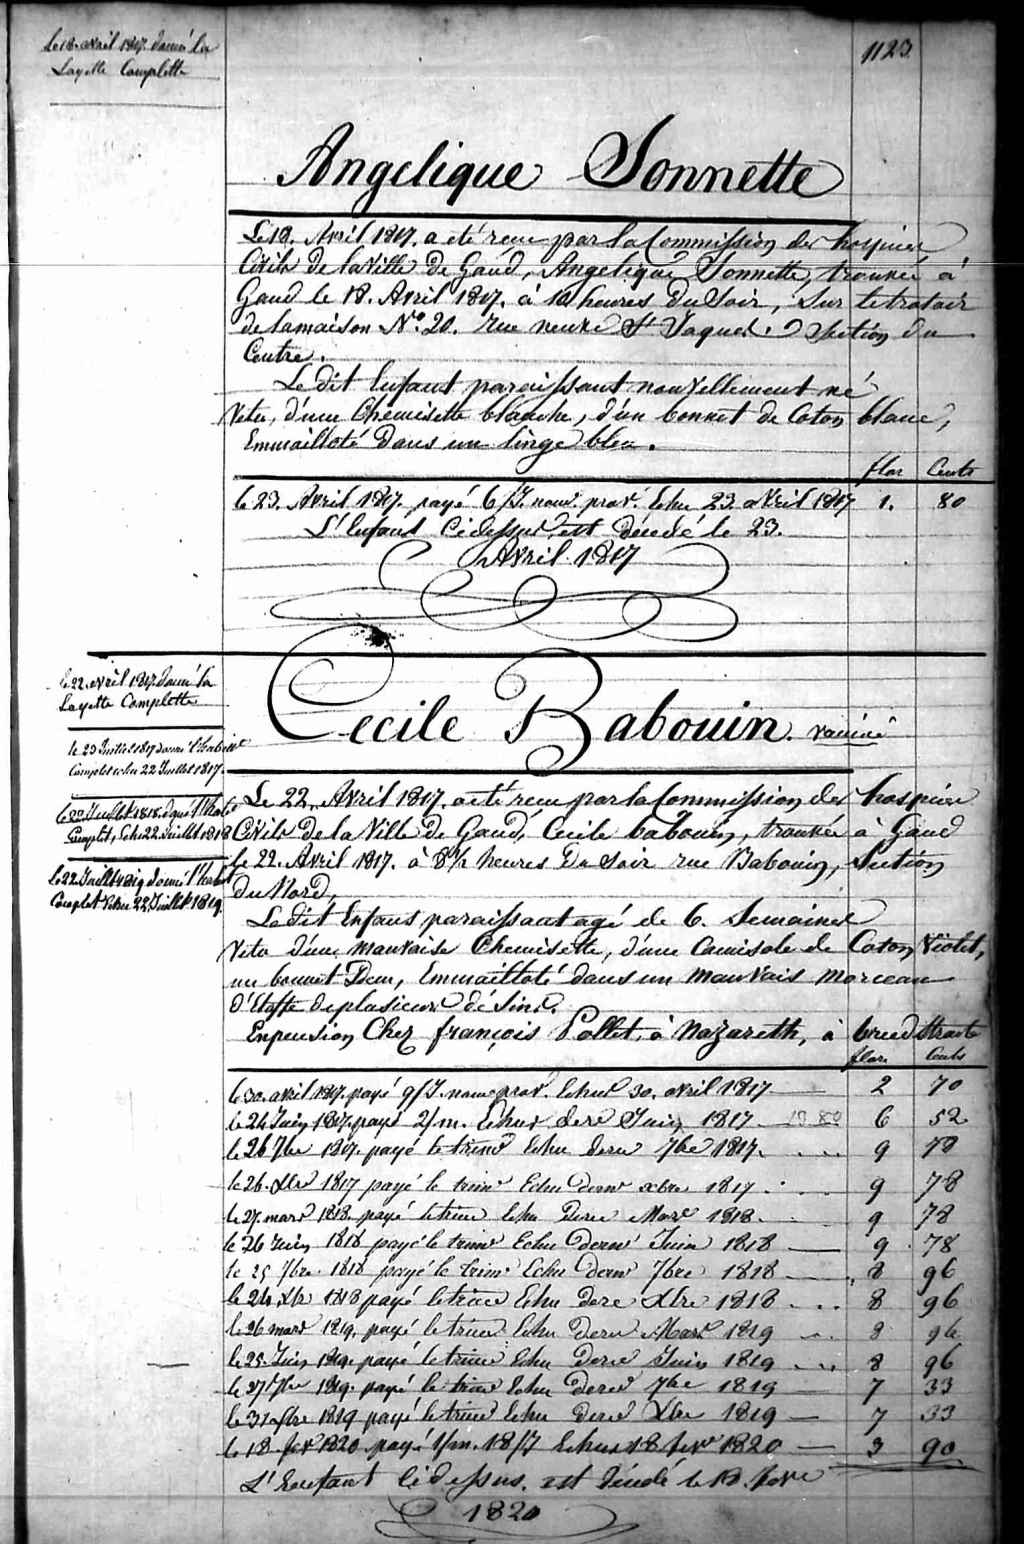 Le 18. avril 1817. donné la
Layette Complette
1123
Angelique Sonnette
Le 18. Avril 1817. a été recu par la Commission des hospices
Civils de la Ville de Gand, Angelique Sonnette, trouvée à
Gand le 18. Avril 1817. à 10 heures du Soir, Sur le trotoir
de la maison No. 20. rue neuve St Jaques. Section du
Centre.
Le dit Enfant paraissant nouvellement né
Vetu, d'une Chemisette blanche, d'un bonnet de Coton blanc,
Emmailloté dans un linge bleu.
flor Cents
le 23. Avril 1817. payé 6/J. nour. prov. Echu 23. avril 1817 1. 80
L'Enfant Cidessus est décédé le 23.
Avril 1817
le 22. avril 1817. donné la
Layette Complette
Cecile Babouin. vaciné
le 23 Juillet 1817 donné l'habit
Complet echu 22 Juillet 1817.
Juillet 1818. l'habit
Complet, Echu 22 Juillet 1818
le 22 Juillet 1819 donné l'habit
Complet Echu 22 Juillet 1819
Le 22. Avril 1817. a été recu par la Commission des hospices
Civils de la Ville de Gand, Cecile babouin, trouvée à Gand
le 22. Avril 1817. à 8½ heures du Soir rue Babouin, Section
du Nord,
Le dit Enfant paraissant agé de 6. Semaines
Vetu d'une mauvaise Chemisette, d'une Camisole de Coton Violet,
un bonnet Idem, Emmailloté dans un mauvais morceau
d'Etoffe de plusieurs désins.
Enpension Chez françois Pollet, à Nazareth, à
flor. Cents
le 30. avril 1817. payé 9/J. nour prov. Echu 30. avril 1817 2 70
le 24 Juin 1817. payé 2/m. Echus dere Juin 1817 6 52
le 26 7bre 1817. payé le trime Echu dere 7bre 1817. 9 78
le 26. Xbre 1817 payé le trime Echu dere xbre 1817. 9 78
le 27. mars 1818. payé le trime Echu dere Mars 1818. 9 78
le 26 Juin 1818 payé le trime Echu dere Juin 1818 9 78
le 25 7bre 1818 payé le trime Echu dere 7bre 1818 8 96
le 24. Xbr 1818 payé le trime Echu dere Xbre 1818 8 96
le 26 mars 1819. payé le trime Echu dere Mars 1819 8 96
le 25. Juin 1819. payé le trime Echu dere Juin 1819 8 96
le 27 7bre 1819. payé le trime Echu dere 7bre 1819 7 33
le 31 Xbre 1819 payé le trime Echu dere Xbre 1819 7 33
le 18 fevr 1820 payé 1/m. 18/J Echus 18 fevr 1820 3 90
L'Enfant Cidessus. est décédé le 18. fevre
1820